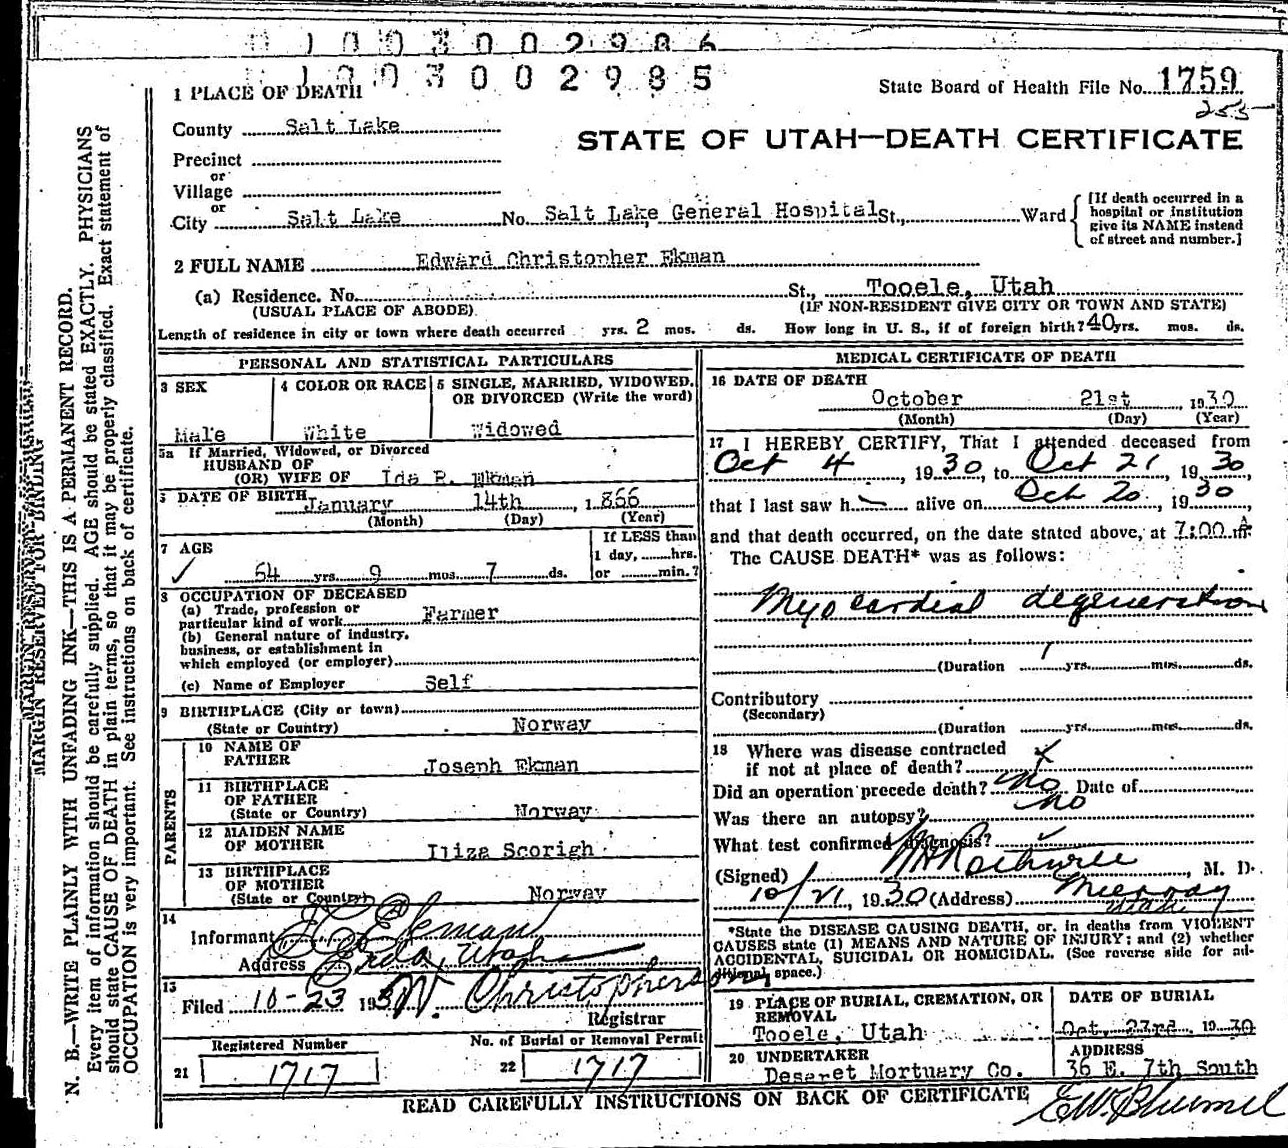 1003002986
1003002985
State Board of Health File No. 1759
253-
1 PLACE OF DEATH
STATE OF UTAH—DEATH CERTIFICATE
County Salt Lake
Precinct
or
Village
or
City Salt Lake No. Salt Lake General Hospital St., Ward
[If death occurred in a hospital or institution give its NAME instead of street and number.]
2 FULL NAME Edward Christopher Ekman
(a) Residence. No. St., Tooele, Utah
(USUAL PLACE OF ABODE) (IF NON-RESIDENT GIVE CITY OR TOWN AND STATE)
Length of residence in city or town where death occurred yrs. 2 mos. ds. How long in U. S., if of foreign birth? 40 yrs. mos. ds.
PERSONAL AND STATISTICAL PARTICULARS
3 SEX
Male
4 COLOR OR RACE
White
5 SINGLE, MARRIED, WIDOWED, OR DIVORCED (Write the word)
Widowed
5a If Married, Widowed, or Divorced
HUSBAND OF
(OR) WIFE OF Ida P. Ekman
6 DATE OF BIRTH January 14th, 1866
(Month) (Day) (Year)
7 AGE
64 yrs. 9 mos. 7 ds.
If LESS than
1 day, hrs.
or min.?
8 OCCUPATION OF DECEASED
(a) Trade, profession or
particular kind of work Farmer
(b) General nature of industry,
business, or establishment in
which employed (or employer)
(c) Name of Employer Self
9 BIRTHPLACE (City or town)
(State or Country) Norway
PARENTS
10 NAME OF
FATHER Joseph Ekman
11 BIRTHPLACE
OF FATHER
(State or Country) Norway
12 MAIDEN NAME
OF MOTHER Iliza Scorigh
13 BIRTHPLACE
OF MOTHER
(State or Country) Norway
14
Informant Ekman
Address Erda, Utah
15
Filed 10-23 193 W. Christopherson,
Registrar
Registered Number
21 1717
No. of Burial or Removal Permit
22 1717
MEDICAL CERTIFICATE OF DEATH
16 DATE OF DEATH
October 21st, 1930
(Month) (Day) (Year)
17 I HEREBY CERTIFY, That I attended deceased from
Oct 4, 1930, to Oct 21, 1930,
that I last saw h alive on Oct 20, 1930,
and that death occurred, on the date stated above, at 7:00 A m.
The CAUSE DEATH* was as follows:
Myocardial degeneration
(Duration 1 yrs. mos. ds.
Contributory
(Secondary)
(Duration yrs. mos. ds.
18 Where was disease contracted
if not at place of death?
Did an operation precede death? No Date of
Was there an autopsy? No
What test confirmed diagnosis?
(Signed), M. D.
10/21, 1930 (Address) Murray
Utah
*State the DISEASE CAUSING DEATH, or, in deaths from VIOLENT
CAUSES state (1) MEANS AND NATURE OF INJURY; and (2) whether
ACCIDENTAL, SUICIDAL OR HOMICIDAL. (See reverse side for ad-
ditional space.)
19 PLACE OF BURIAL, CREMATION, OR
REMOVAL
Tooele, Utah
DATE OF BURIAL
Oct. 23rd, 1930
20 UNDERTAKER
Deseret Mortuary Co.
ADDRESS
36 E. 7th South
READ CAREFULLY INSTRUCTIONS ON BACK OF CERTIFICATE
MARGIN RESERVED FOR BINDING
N. B.—WRITE PLAINLY WITH UNFADING INK—THIS IS A PERMANENT RECORD.
Every item of information should be carefully supplied. AGE should be stated EXACTLY. PHYSICIANS
should state CAUSE OF DEATH in plain terms, so that it may be properly classified. Exact statement of
OCCUPATION is very important. See instructions on back of certificate.